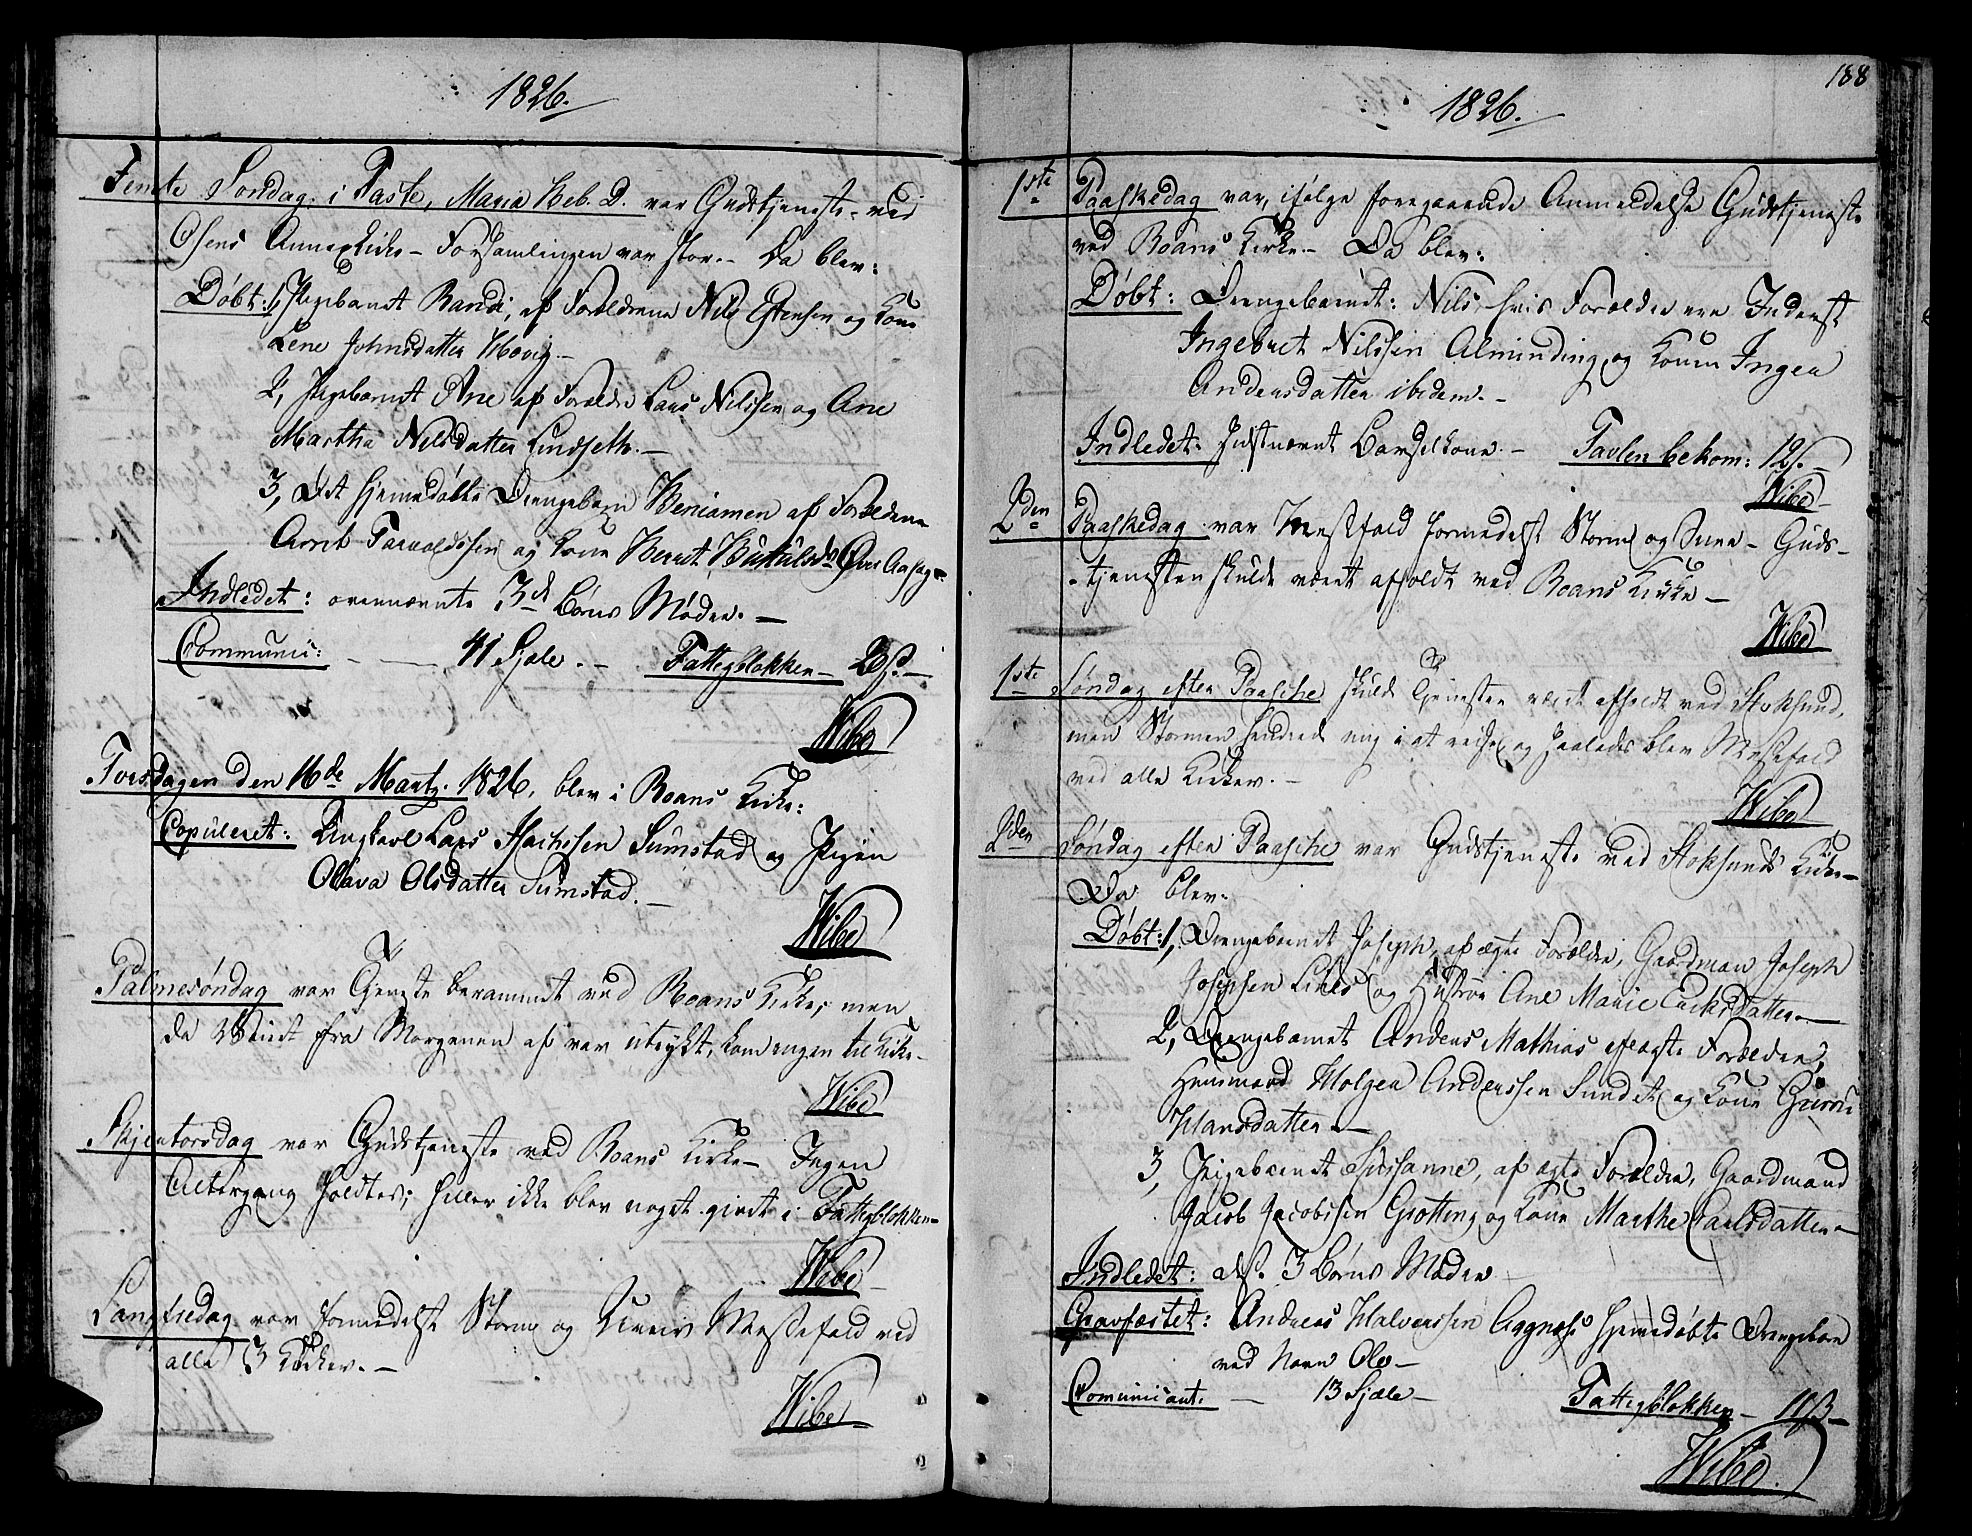 1826.
Femte Søndag i Faste, Maria Beb. D. var Gudstjeneste ved
Osens Annexkirke – Forsamlingen var stor. – Da blev:
Døbt: 1, Pigebarnet Randi, af Forældrene Nils Estensen og Kone
Lene Johnsdatter Hovig. –
2, Pigebarnet Ane af Forældre Lars Nilssen og Ane
Martha Nilsdatter Lindseth. –
3, Det hjemedøbte Drengebarn Beniamen af Forældrene
Arnt Tarvaldssen og Kone Berret
Indledet: ovennævnte 3de Børns Mødre. –
Communic: – 41 Sjæle. – Fattigblokken –
Wibe
Torsdagen den 16de Martz. 1826, blev i Roans Kirke:
Copuleret: Ungkarl Lars Sumstad og Pigen
Olava Olsdatter Sumstad. –
Wibe
Palmesøndag var Tjeneste berammet ved Roans Kirke, men
da Veiret fra Morgenen af var urykt, kom ingen til Kirke –
Wibe
Skjertorsdag var Gudstjeneste ved Roans Kirke – Ingen
Altergang holdtes; heller ikke blev noget givet i Fattigblokken –
Wibe
Langfredag var formedelst Storm og Ureir Messefald ved
alle 3 Kirker. –
Wibe
188
1826.
1ste Paaskedag var, ifølge foregaaende Anmeldelse Gudstjeneste
ved Roans Kirke. – Da blev:
Døbt: Drengebarnet: Nils, hvis Forældre ere Inderst
Ingebret Nilssen Alminding og Konen Inger
Andersdatter ibidem. –
Indledet: sidstnævnt Barselkone. – Tavlen bekom: 12 –
Wibe
2den Paaskedag var Messefald formedelst Storm og Snee – Guds-
tjenesten skulde været afholdt ved Roans Kirke –
Wibe
1ste Søndag efter Paasche skulde Tjenesten været afholdt ved Stoksund,
men Stormen hindrede mig i at reise, og saaledes blev Messefald
ved alle Kirker. –
Wibe
2den Søndag efter Paasche var Gudstjeneste ved Stoksunds Kirke –
Da blev:
Døbt: 1, Drengebarnet Joseph, af ægte Forældre, Gaardmand Joseph
Josephsen og Hustrue Ane Marie Ericksdatter. –
2, Drengebarnet Anders Mathias af ægte Forældre,
Huusmand Holger Anderssen Sundet og Kone Gurru
Hansdatter. –
3, Pigebarnet Sussanne, af ægte Forældre, Gaardmand
Jacob Jacobssen Grotting og Kone Marthe Carlsdatter –
Indledet: 3 Børns Mødre –
Gravfæstet: Andreas Halverssen hjemedøbte Drengebarn
ved Navn Ole –
Comunicant: – 13 Sjæle – Fattigblokken –
Wibe.